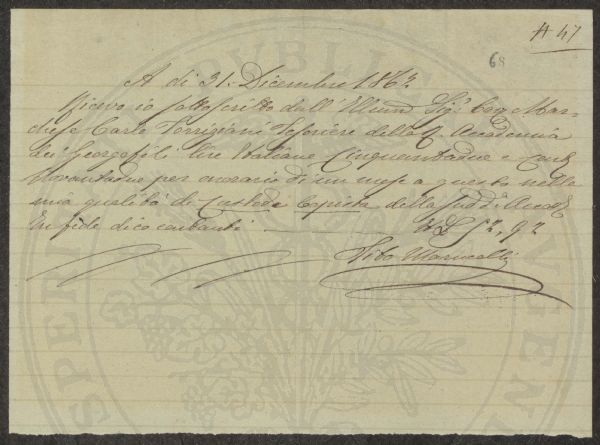 # 47
68
A di 31. Dicembre 1863
Ricevo io sottoscritto dall'Illmo Sigr Cav Mar=
chese Carlo Torrigiani Tesoriere della R. Accademia
dei Georgofili lire Italiane Cinquantadue e Cent
Novantadue per onorario di un mese a questo nella
mia qualità di Custode Copista della Sudd. Accad
In fede dico contanti £ 52,92
Tito Marucelli